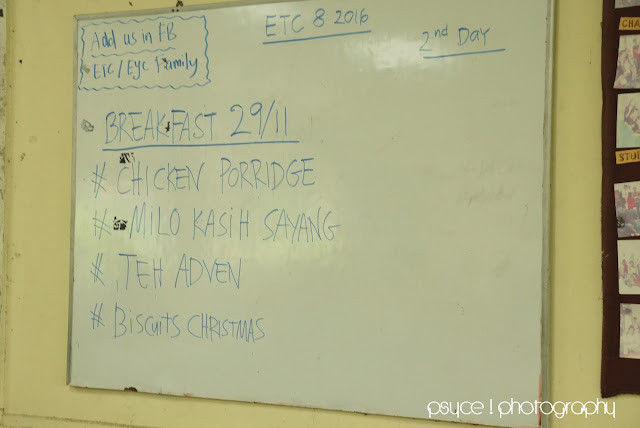 Add us in FB
ETC / Eyc Family
ETC 8 2016
2nd Day
BREAKFAST 29/11
# CHICKEN PORRIDGE
# MILO KASIH SAYANG
# TEH ADVEN
# Biscuits CHRISTMAS
psyce ! photography